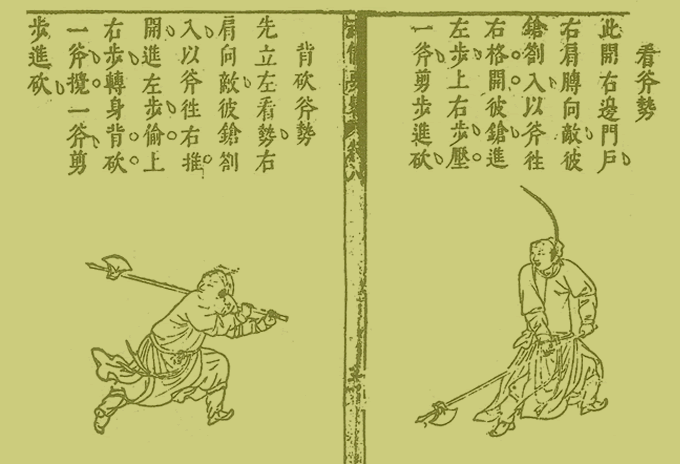 看斧勢
此開右邊門戶
右肩膊向敵彼
鎗劄入以斧往
右格開彼鎗進
左步上右步壓
一斧剪步進砍
背砍斧勢
先立左看勢右
肩向敵彼鎗劄
入以斧往右推
開進左步偷上
右步轉身背砍
一斧攪一斧剪
步進砍